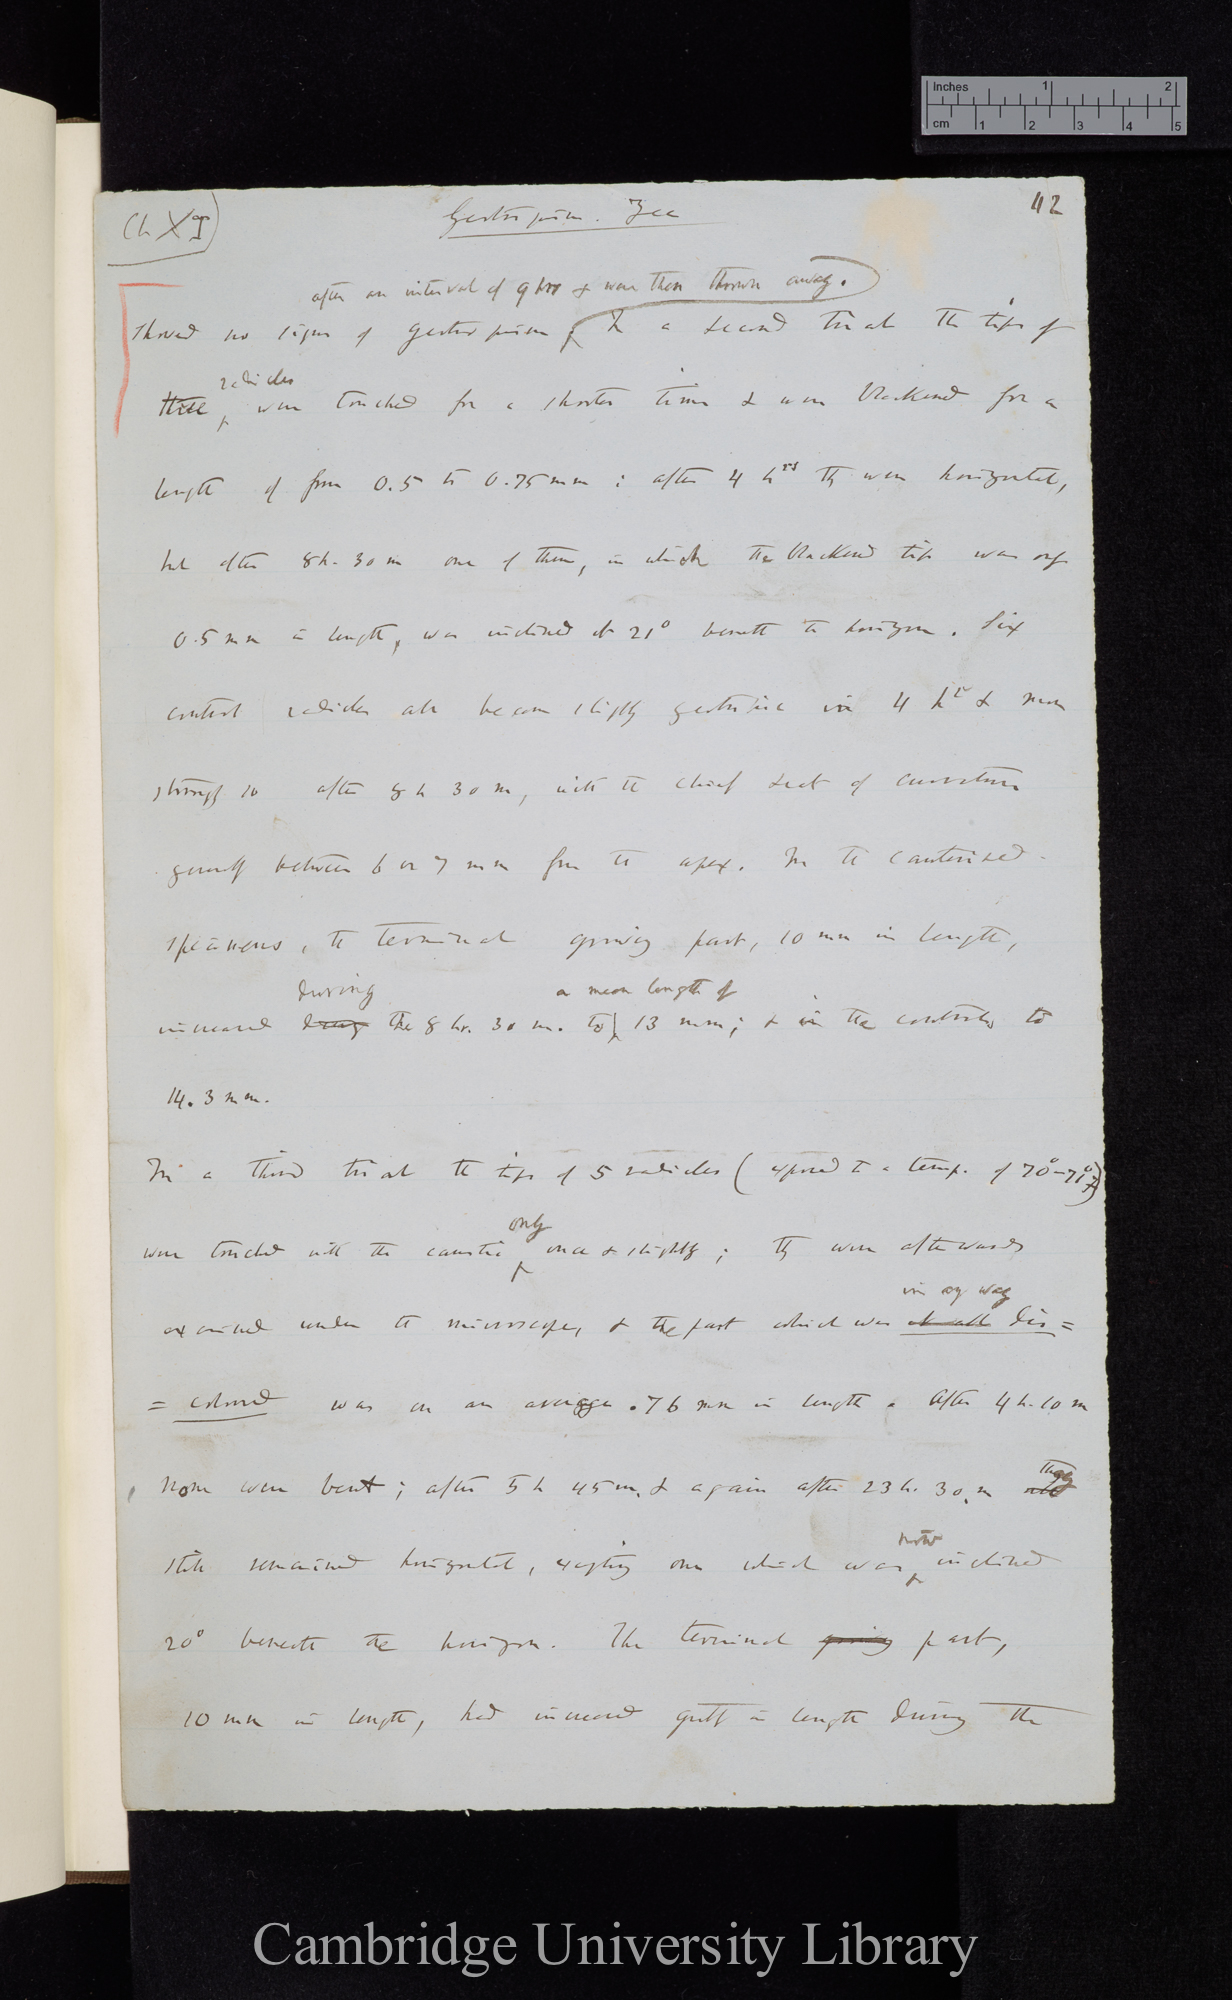 Inches 1 2
cm 1 2 3 4 5
Ch XI
Geotropism. Zea
42
after an interval of 9 hrs & were then thrown away.
showed no signs of geotropism; In a second trial the tips of
radicles
three were touched for a shorter time & were blackened for a
length of from 0.5 to 0.75 mm; after 4 hrs they were horizontal,
but after 8h. 30 m one of them, in which the blackened tip was only
0.5 mm in length, was inclined at 21° beneath the horizon. Six
control radicles all became slightly geotropic in 4 hr & more
strongly so after 8 h 30 m, with the chief seat of curvature
generally between 6 or 7 mm from the apex. In the cauterised
specimens, the terminal growing part, 10 mm in length,
during a mean length of
increased during the 8 hr. 30 m. to 13 mm; & in the controls to
14.3 mm.
In a third trial the tips of 5 radicles (exposed to a temp. of 70°-71° F)
only
were touched with the caustic once & slightly; they were afterwards
in any way
examined under the microscope, & the part which was at all dis=
=coloured was on an average .76 mm in length. After 4 h. 10 m
none were bent; after 5 h 45 m, & again after 23 h. 30. m all
they
still remained horizontal, excepting one which was inclined
now
20° beneath the horizon. The terminal growing part,
10 mm in length, had increased greatly in length during the
Cambridge University Library